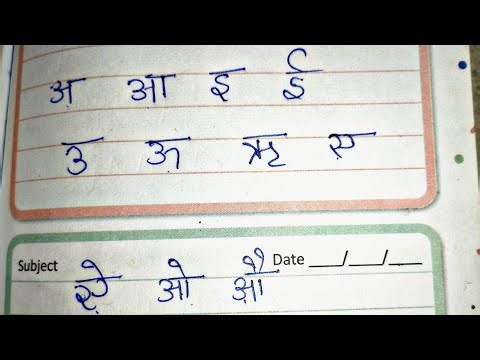 अ आ इ ई
उ ऊ ऋ ए
Subject Date ___/___/___
ऐ ओ औ